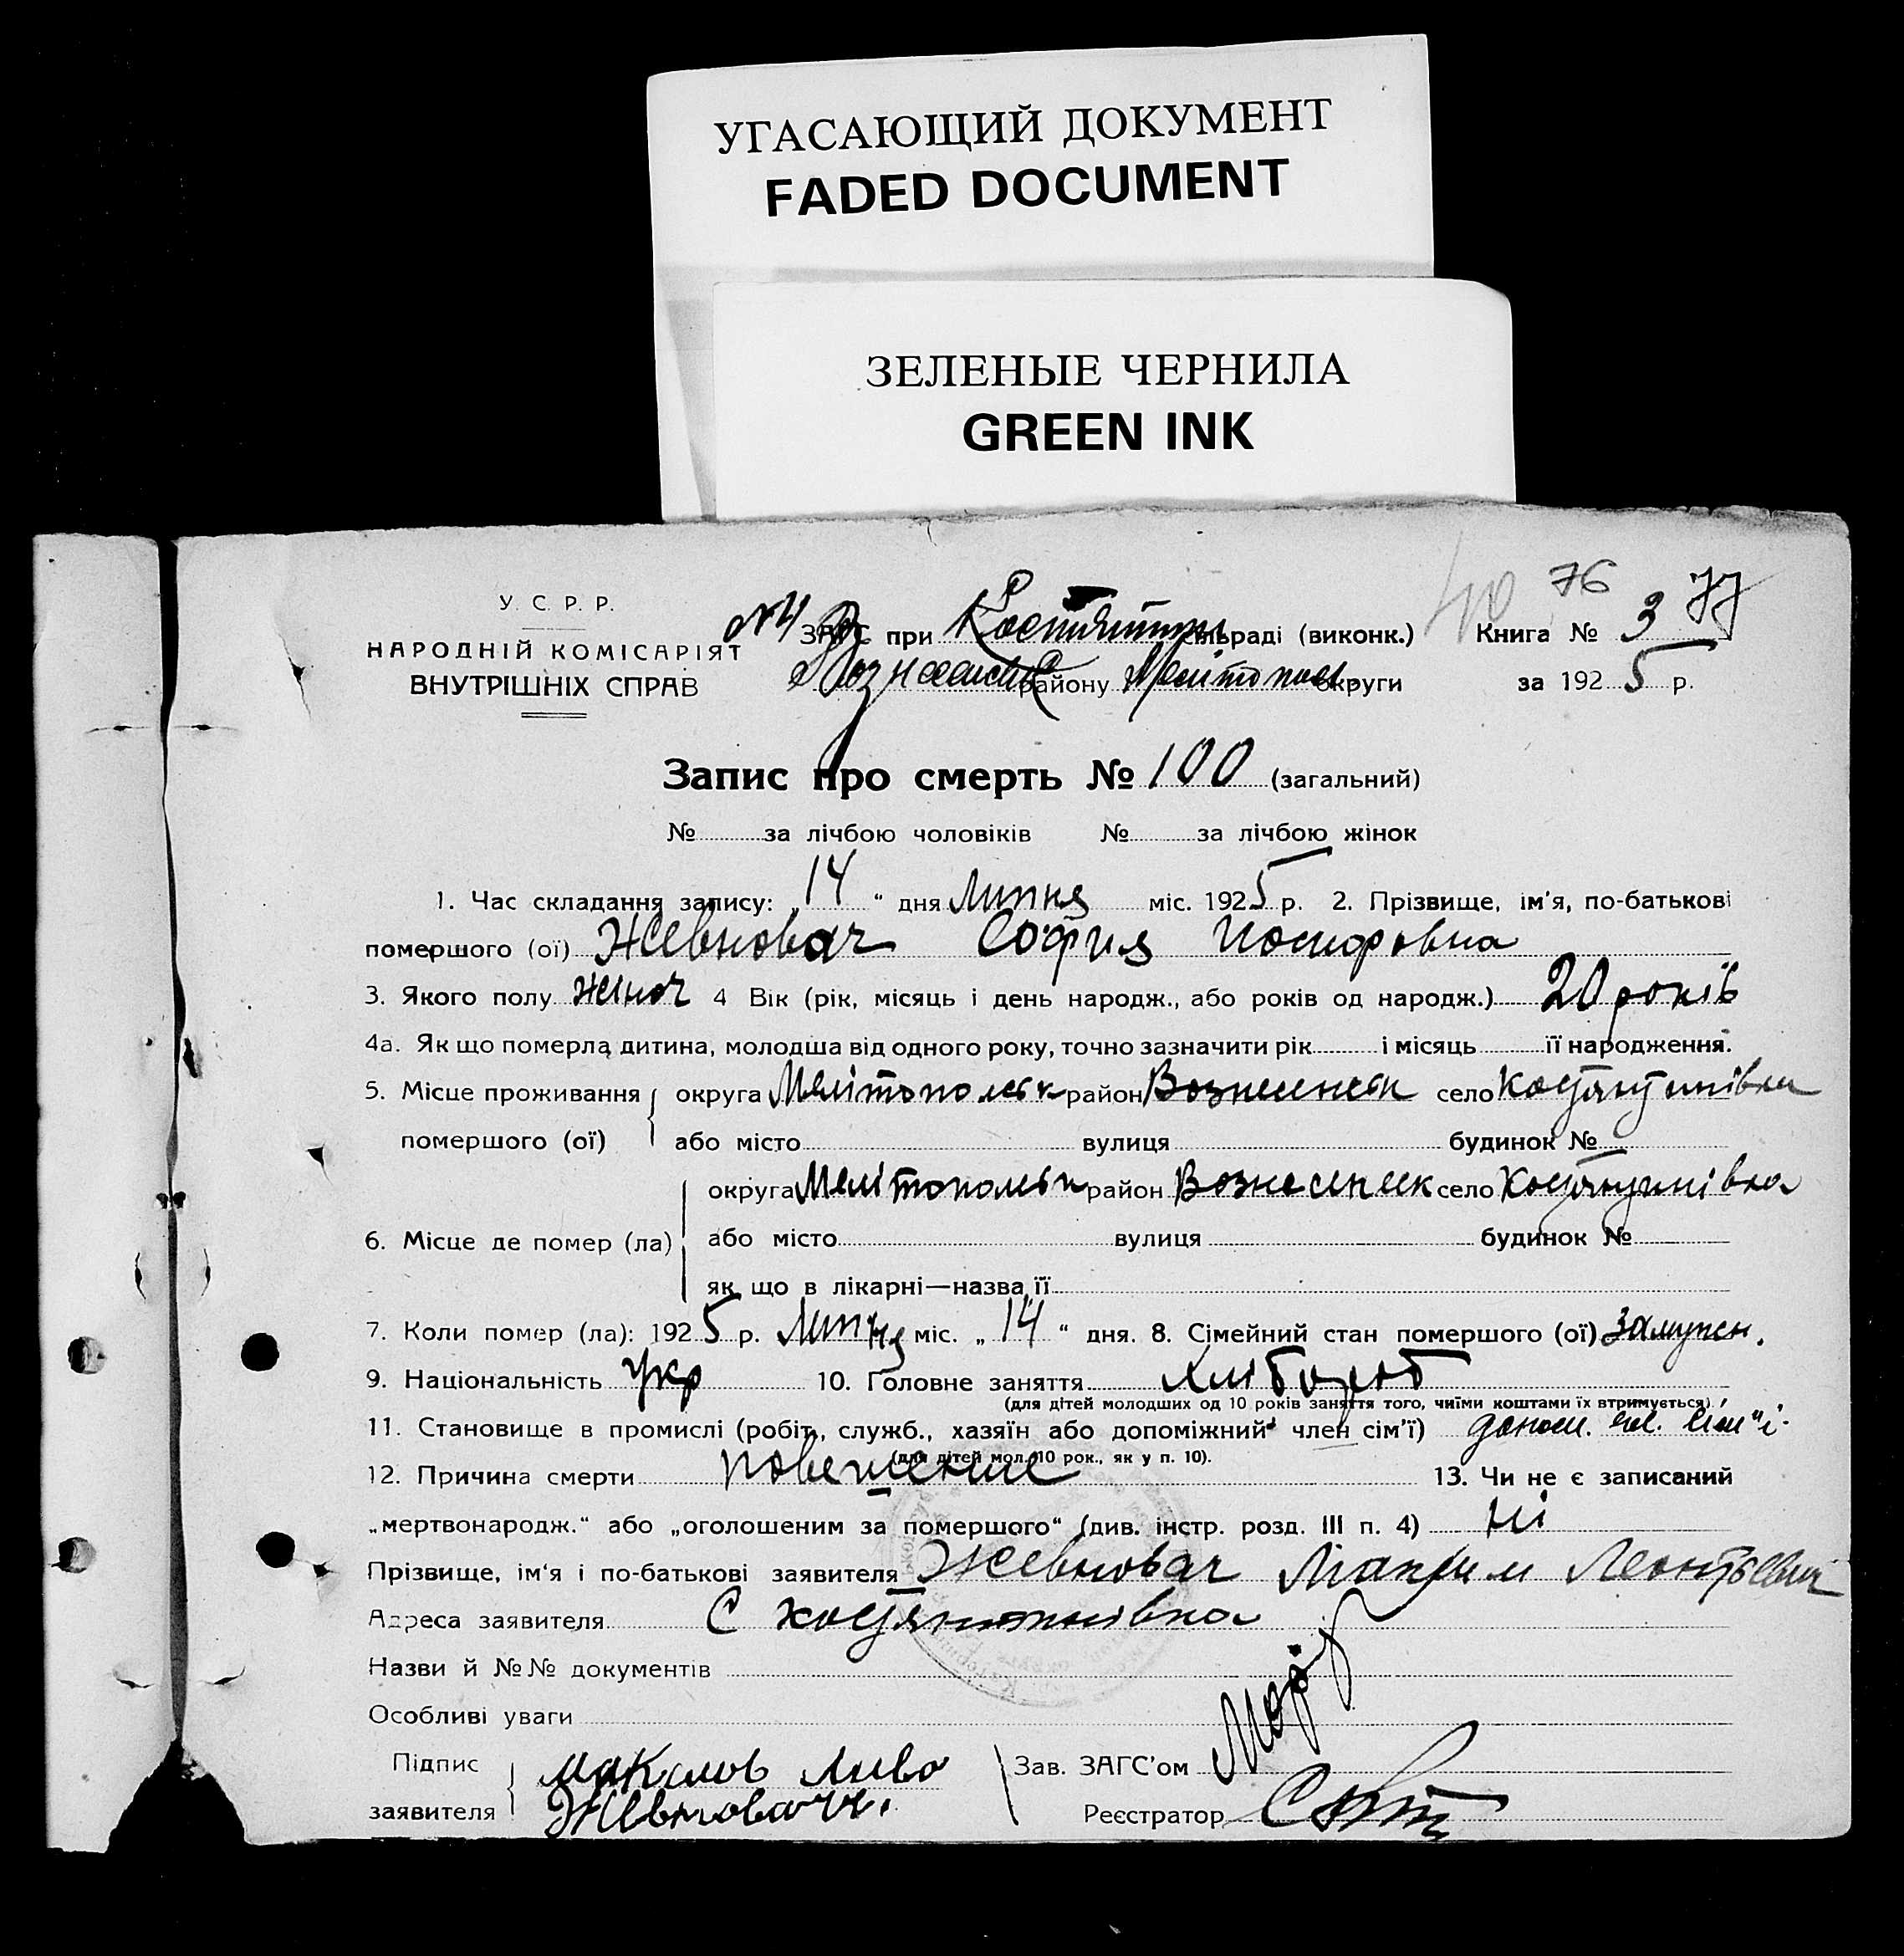 УГАСАЮЩИЙ ДОКУМЕНТ
FADED DOCUMENT
ЗЕЛЕНЫЕ ЧЕРНИЛА
GREEN INK
40 76 77
У. С. Р. Р.
НАРОДНІЙ КОМІСАРІЯТ
ВНУТРІШНІХ СПРАВ
ЗАГС при сільраді (виконк.) Книга № 3
району округи за 1925 р.
Запис про смерть № 100 (загальний)
№ за лічбою чоловіків № за лічбою жінок
1. Час складання запису: „14“ дня Липня міс. 1925 р. 2. Прізвище, ім'я, по-батькові
помершого (ої) Жевновач София Иосифовна
3. Якого полу жіноч 4 Вік (рік, місяць і день народж., або років од народж.) 20 років
4а. Як що померла дитина, молодша від одного року, точно зазначити рік і місяць її народження.
5. Місце проживання помершого (ої) округа Мелітопольск район Вознесенск село Костянтинівка
або місто вулиця будинок №
6. Місце де помер (ла) округа Мелітопольск район Вознесенск село Костянтинівка
або місто вулиця будинок №
як що в лікарні—назва її
7. Коли помер (ла): 1925 р. Липня міс. „14“ дня. 8. Сімейний стан помершого (ої) замужн.
9. Національність Укр 10. Головне заняття хлібороб
(для дітей молодших од 10 років заняття того, чиїми коштами їх втримується)
11. Становище в промислі (робіт., служб., хазяїн або допоміжний член сім'ї) допом. чл. сім"ї
(для дітей мол. 10 рок., як у п. 10).
12. Причина смерти повешение 13. Чи не є записаний
„мертвонародж.“ або „оголошеним за помершого“ (див. інстр. розд. III п. 4) ні
Прізвище, ім'я і по-батькові заявителя Жевновач Максим Леонтьевич
Адреса заявителя С Костянтинівка
Назви й №№ документів
Особливі уваги
Підпис заявителя Жевновач
Зав. ЗАГС'ом
Реєстратор